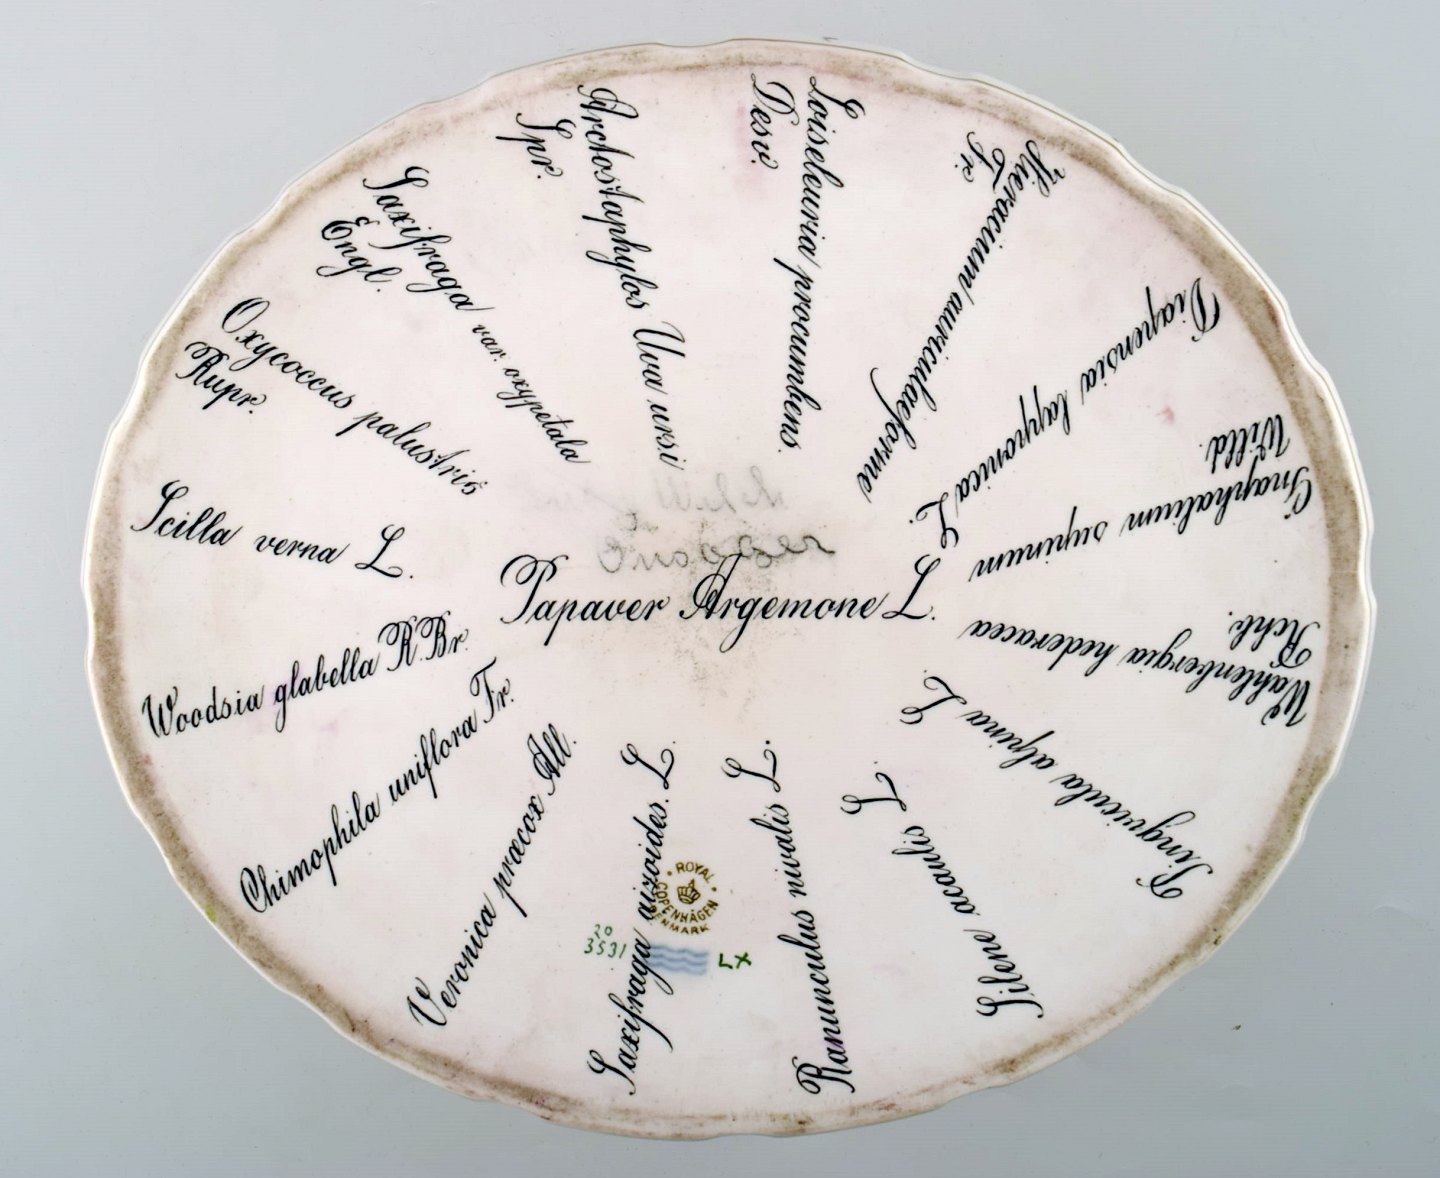 Papaver Argemone L.
Loiseleuria procumbens.
Desv.
Hieracium auriculæforme
Fr.
Diapensia lapponica L.
Gnaphalium supinum
Willd.
Wahlenbergia hederacea
Rchb.
Pinguicula alpina L.
Silene acaulis L.
Ranunculus nivalis L.
Saxifraga aizoides. L.
Veronica præcox All.
Chimophila uniflora Fr.
Woodsia glabella R.Br.
Scilla verna L.
Oxycoccus palustris
Rupr.
Saxifraga var. oxypetala
Engl.
Arctostaphylos Uva ursi
Spr.
ROYAL
COPENHAGEN
DENMARK
20
3531
LX